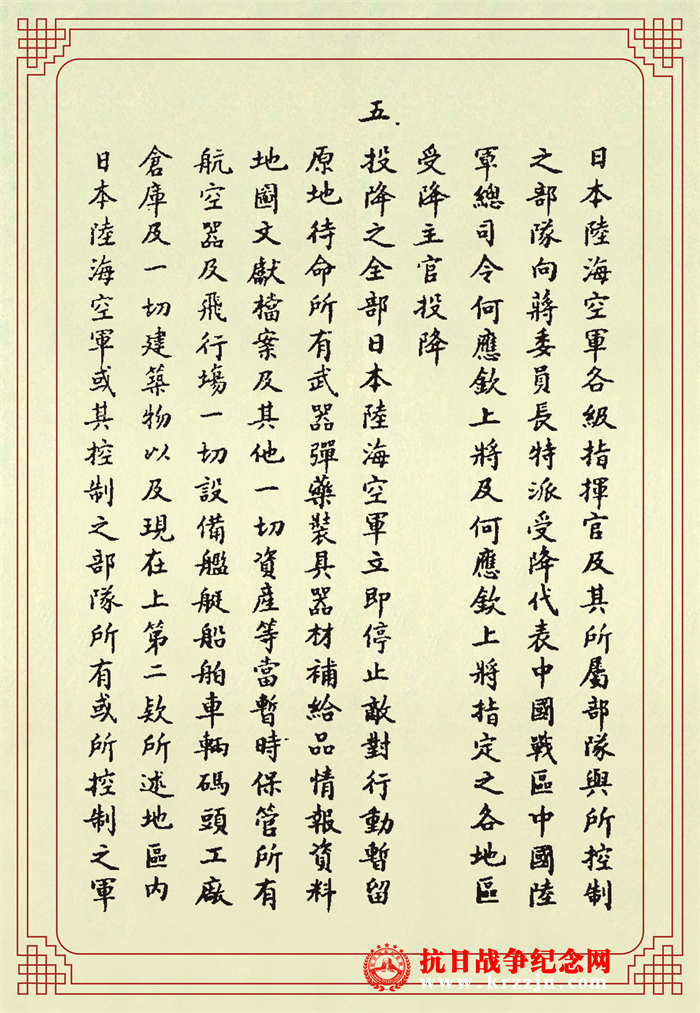 日本陸海空軍各級指揮官及其所屬部隊與所控制
之部隊向蔣委員長特派受降代表中國戰區中國陸
軍總司令何應欽上將及何應欽上將指定之各地區
受降主官投降
五.
投降之全部日本陸海空軍立即停止敵對行動暫留
原地待命所有武器彈藥裝具器材補給品情報資料
地圖文獻檔案及其他一切資產等當暫時保管所有
航空器及飛行場一切設備艦艇船舶車輛碼頭工廠
倉庫及一切建築物以及現在上第二款所述地區內
日本陸海空軍或其控制之部隊所有或所控制之軍
抗日战争纪念网
www.krzzjn.com